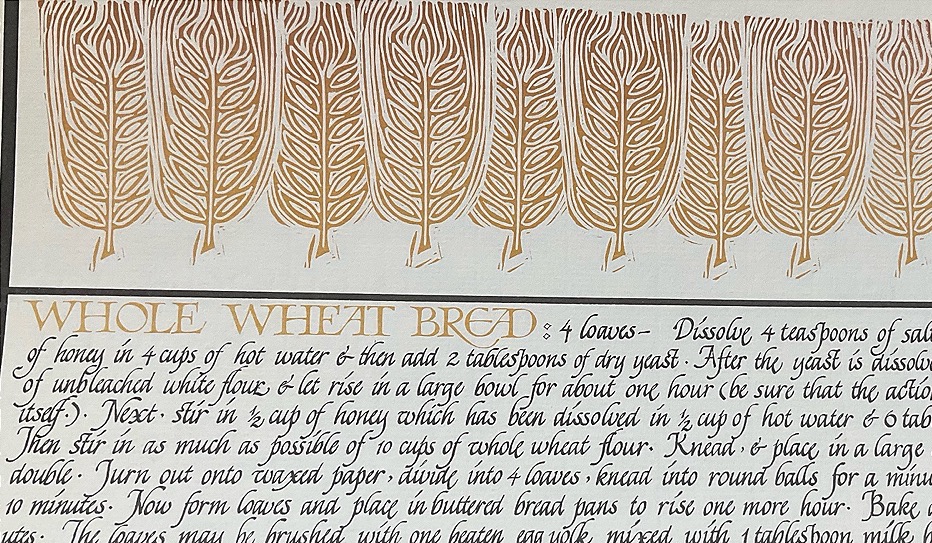 WHOLE WHEAT BREAD : 4 loaves – Dissolve 4 teaspoons of
of honey in 4 cups of hot water & then add 2 tablespoons of dry yeast · After the yeast is
of unbleached white flour & let rise in a large bowl for about one hour (be sure that the
itself.) · Next · stir in ½ cup of honey which has been dissolved in ½ cup of hot water & 6
Then stir in as much as possible of 10 cups of whole wheat flour · Knead, & place in a large
double · Turn out onto waxed paper, divide into 4 loaves, knead into round balls for a
10 minutes · Now form loaves and place in buttered bread pans to rise one more hour · Bake
The loaves may be brushed with one beaten egg yolk mixed with 1 tablespoon milk